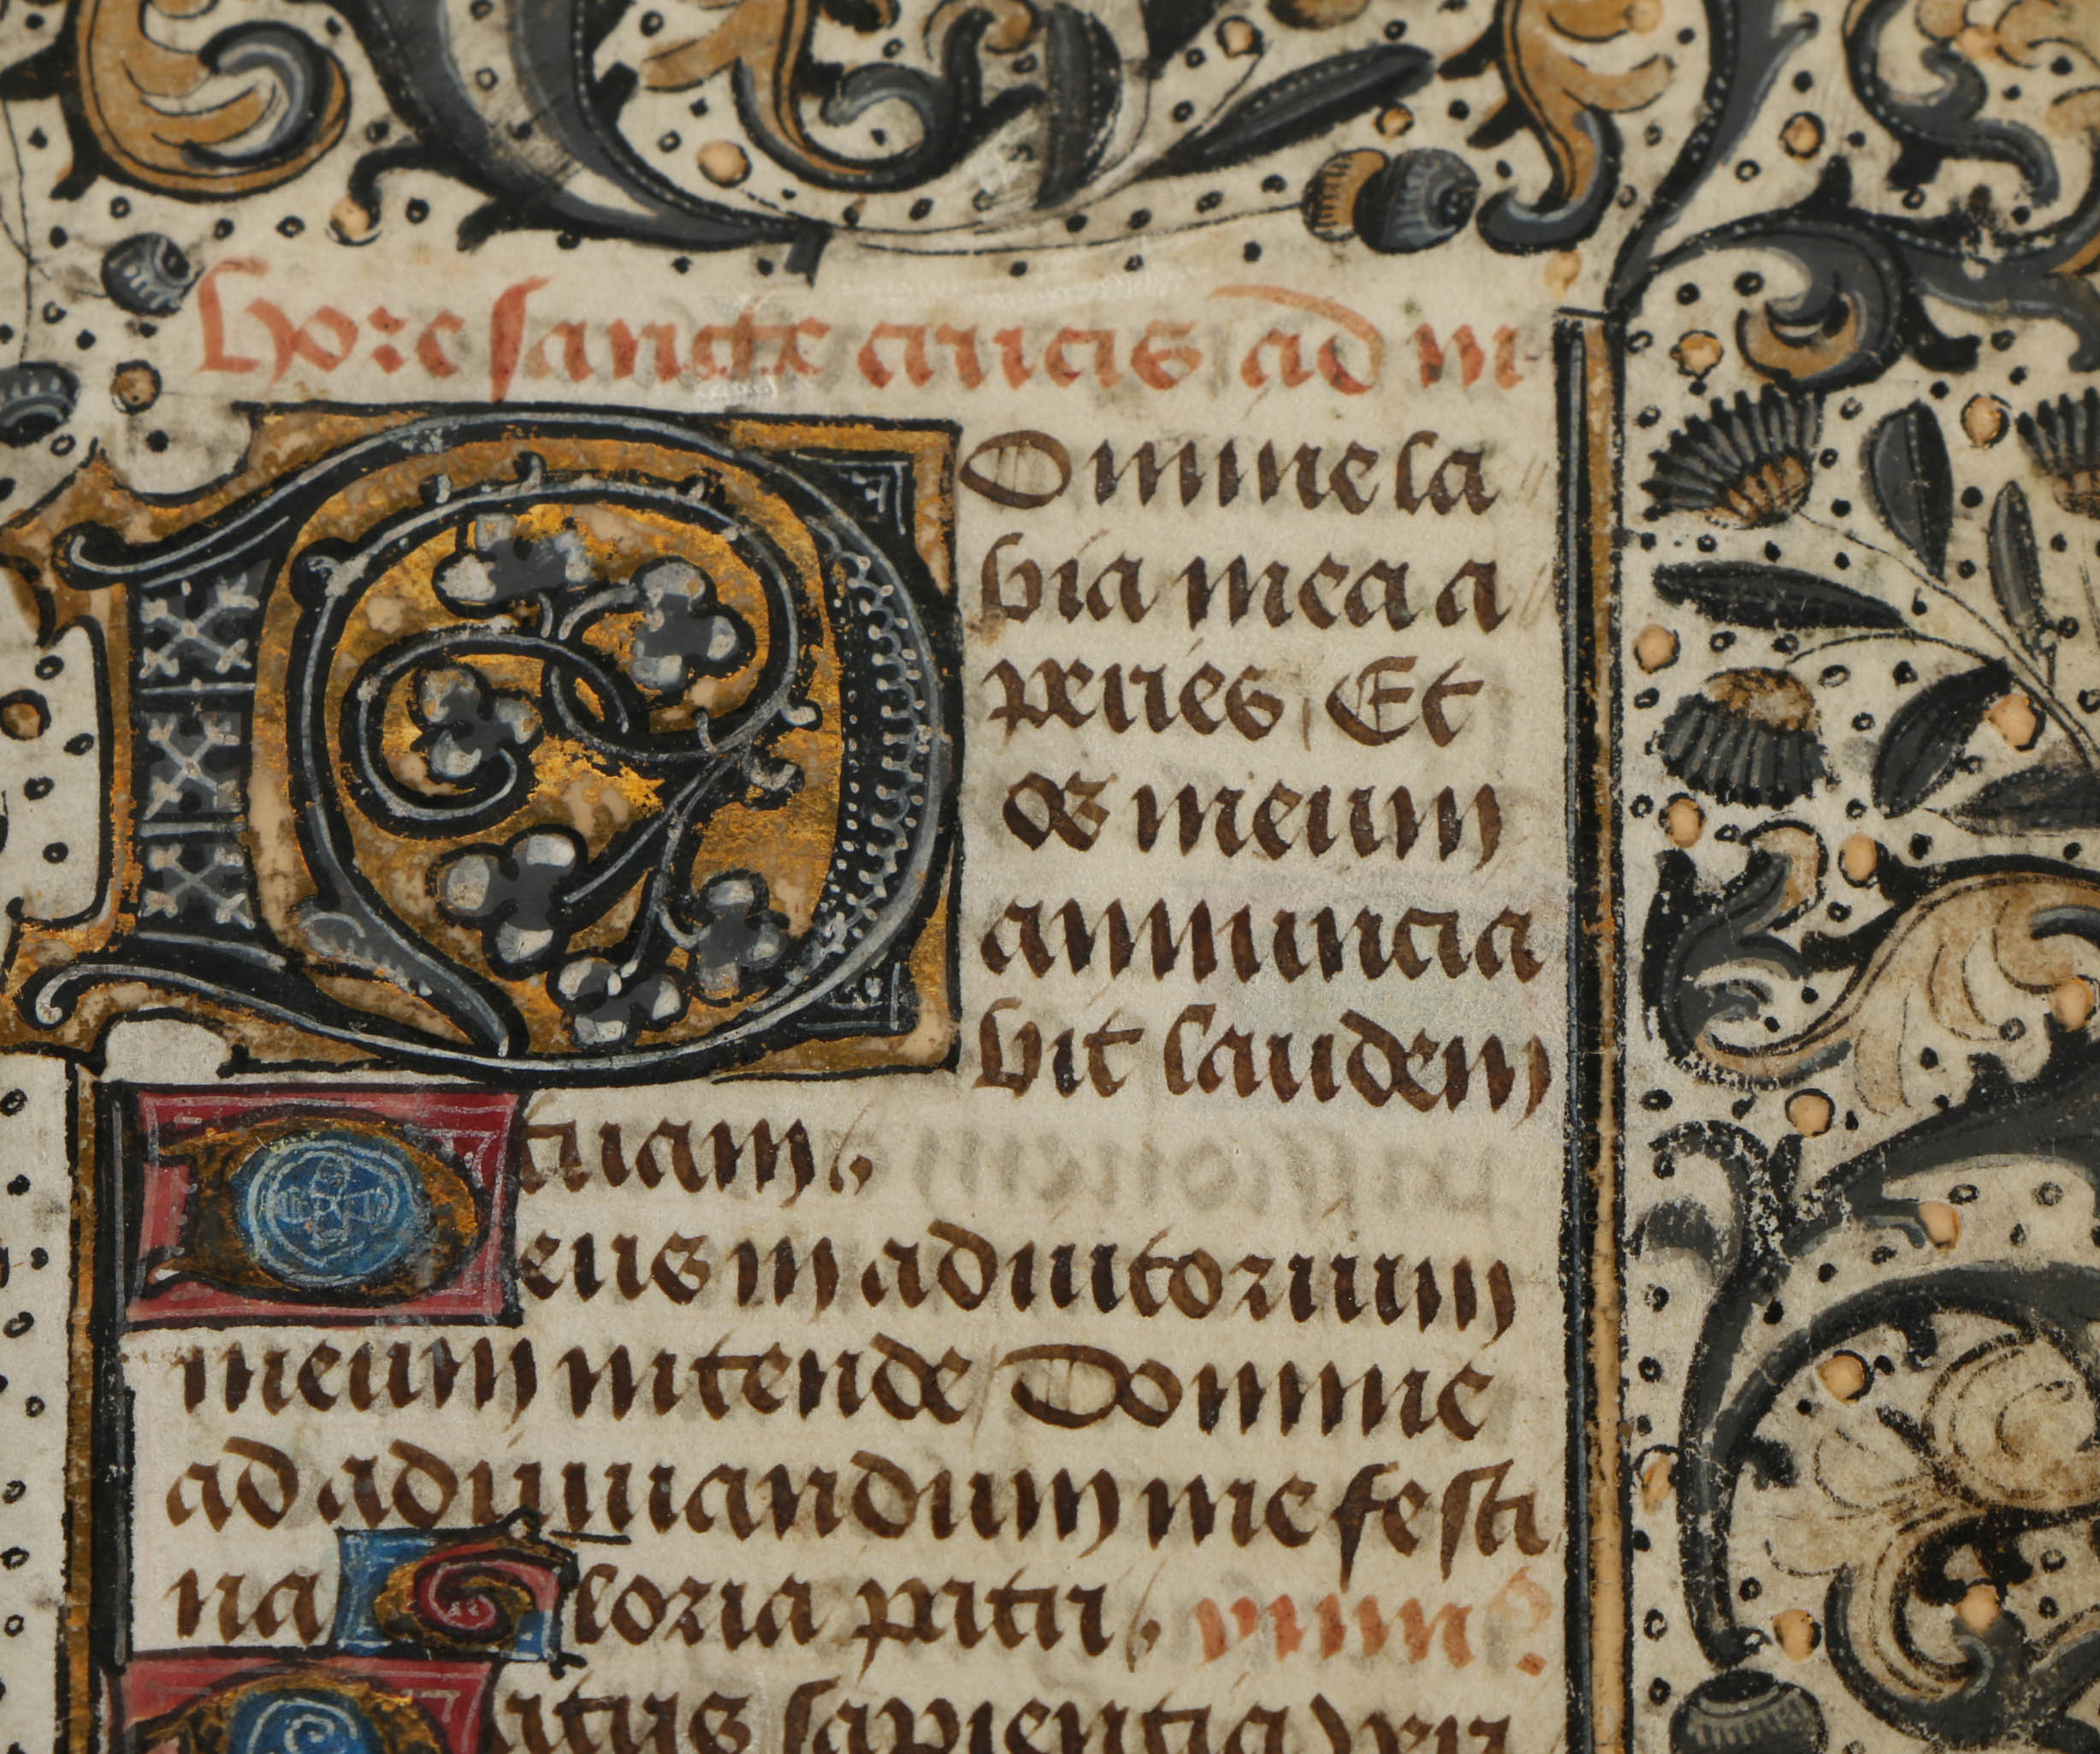 hore sancte crucis ad m
Domine la
bia mea a
peries Et
os meum
annuncia
bit laudem
tuam
Deus in adiutorium
meum intende Domine
ad adiuuandum me festi
na Gloria pitri ymnus
Patris sapientia veri